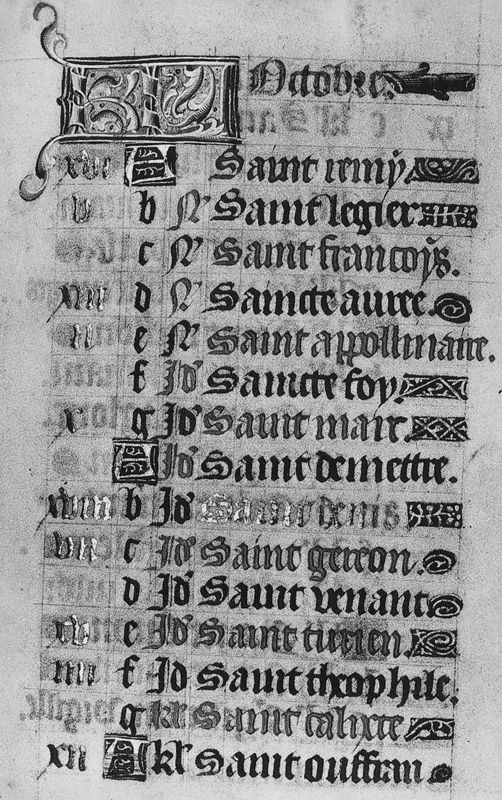 KL Octobre.
xvi A Saint remy
v b N Saint legier
c N Saint francoys.
xiii d N Saincte auree.
ii e N Saint appollinaire.
f Id Saincte foy.
x g Id Saint marc.
A Id Saint demettre.
xviii b Id Saint denis
vii c Id Saint gereon.
d Id Saint venant
xv e Id Saint turien.
iiii f Id Saint theophile.
g kl Saint calixte
xii A kl Saint ouffran